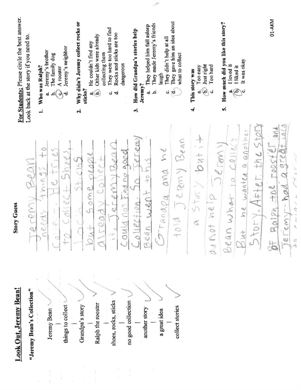 Look Out, Jeremy Bean!
"Jeremy Bean's Collection"
Jeremy Bean
things to collect
Grandpa's story
Ralph the rooster
shoes, rocks, sticks
no good collection
another story
a great idea
collect stories
Story Guess
Jeremy Bean
needs things to
to collect shoes
rocks sticks
but some people
already collect
it. Jeremy Bean
found no good
collection. So Jeremy
Bean went to his
Grandpa and he
told Jeremy Bean
a story but it
did not help Jeremy
Bean what to collect
But he wanted another
story. After the story
of Ralph the rooster and
Jeremy had a great idea
For Students: Please circle the best answer.
Look back at the story if you need to.
1. Who was Ralph?
a. Jeremy's brother
b. The family dog
c. A rooster
d. Jeremy's neighbor
2. Why didn't Jeremy collect rocks or
sticks?
a. He couldn't find any
b. Other kids were already
collecting them
c. They were too hard to find
d. Rocks and sticks are too
dangerous
3. How did Grandpa's stories help
Jeremy?
a. They helped him fall asleep
b. They made Jeremy's friends
laugh
c. They didn't help at all
d. They gave him an idea about
what to collect
4. This story was
a. Too easy
b. Just right
c. Too hard
5. How much did you like this story?
a. I loved it
b. I liked it
c. It was okay